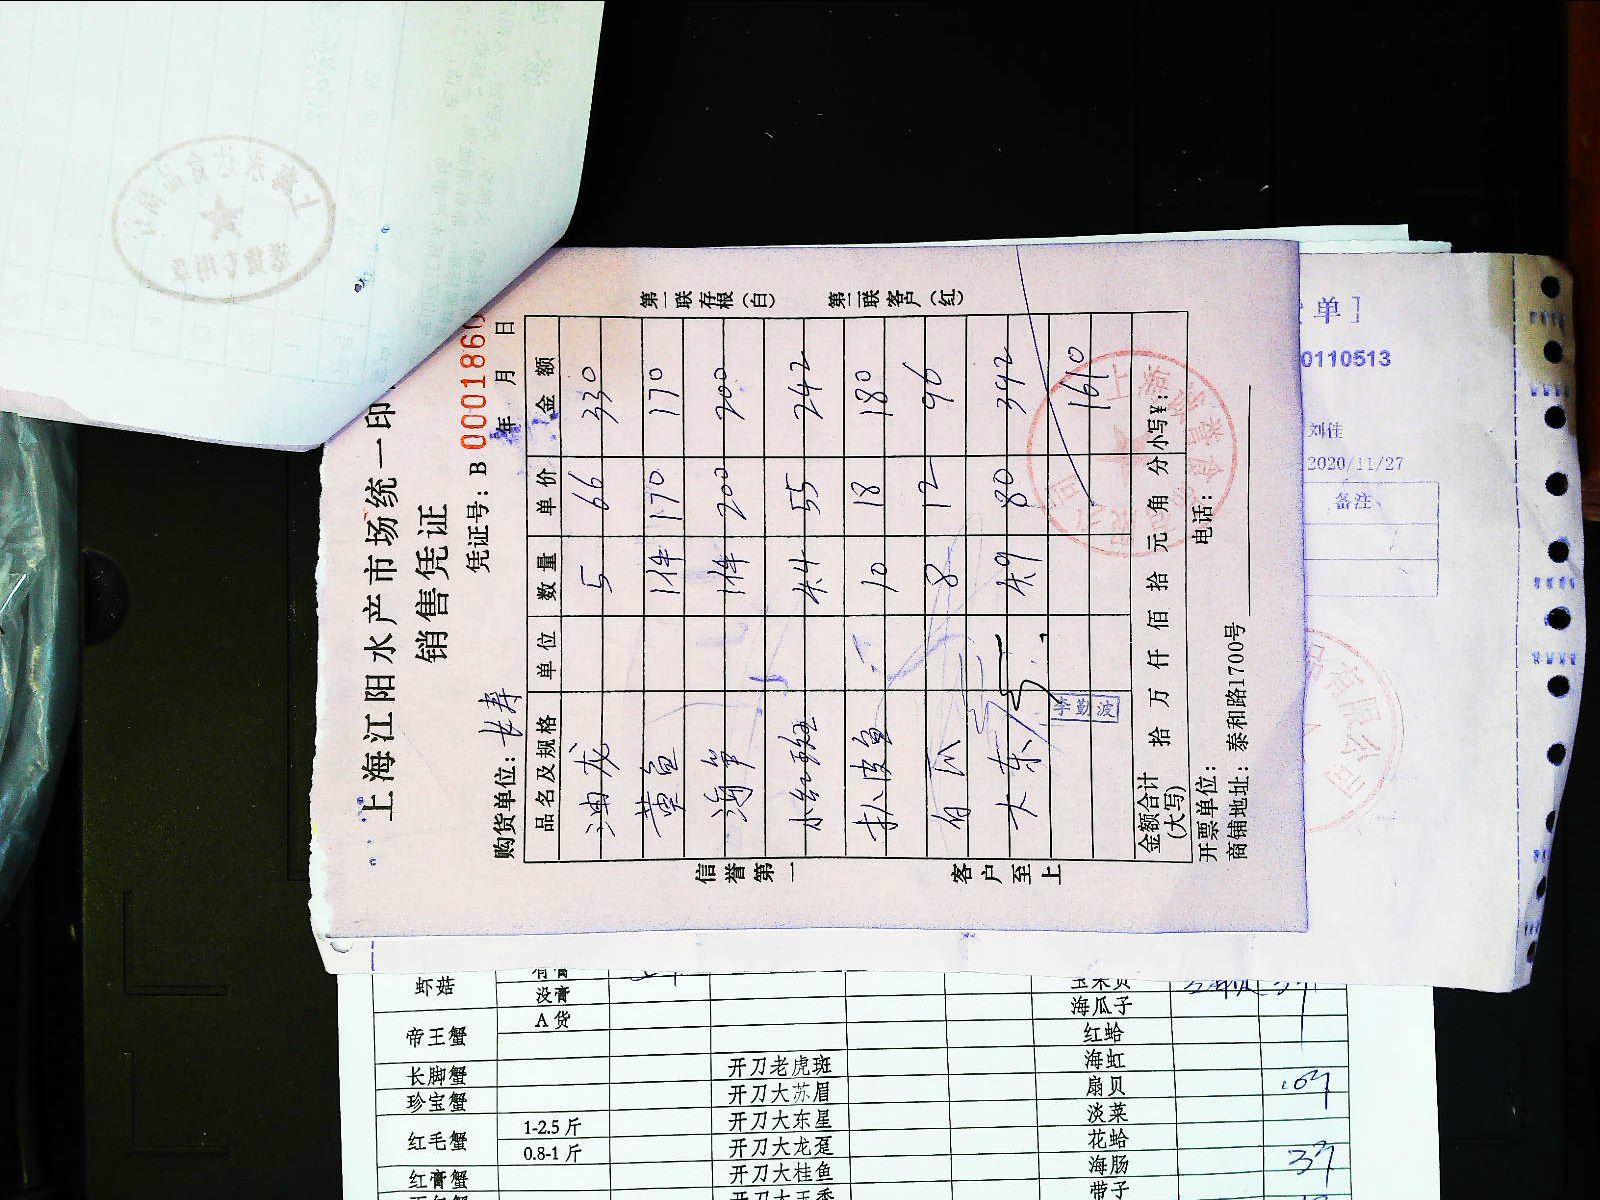 上海江阳水产市场统一印
销售凭证
凭证号：B 0001860
购货单位：长寿 年 月 日
品名及规格 单位 数量 单价 金额
油龙 5 66 330
黄鱼 1件 170 170
海笋 1件 200 200
小红斑 4.4 55 242
扒皮鱼 10 18 180
8 12 96
大东 4.9 80 392
1610
李勤波
金额合计(大写) 拾 万 仟 佰 拾 元 角 分 小写¥：
开票单位： 电话：
商铺地址：泰和路1700号
信誉第一 客户至上
第一联存根（白） 第二联客户（红）
单］
0110513
刘佳
2020/11/27
备注
有限公司
送货专用章
虾菇 有膏
没膏
帝王蟹 A 货
长脚蟹 开刀老虎斑
珍宝蟹 开刀大苏眉
红毛蟹 1-2.5 斤 开刀大东星
0.8-1 斤 开刀大龙趸
红膏蟹 开刀大桂鱼
玉米贝
海瓜子
红蛤
海虹
扇贝
淡菜
花蛤
海肠
带子